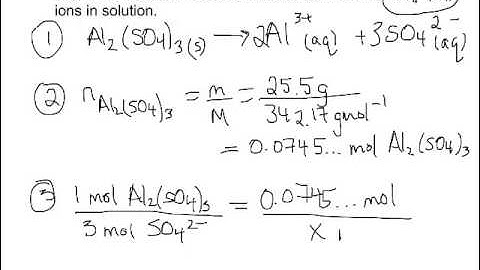 ions in solution.
① Al₂(SO₄)₃(s) ⟶ 2Al³⁺(aq) + 3SO₄²⁻(aq)
② n Al₂(SO₄)₃ = m/M = 25.5g / 342.17 gmol⁻¹
= 0.0745... mol Al₂(SO₄)₃
③ 1 mol Al₂(SO₄)₃ / 3 mol SO₄²⁻ = 0.0745... mol / x